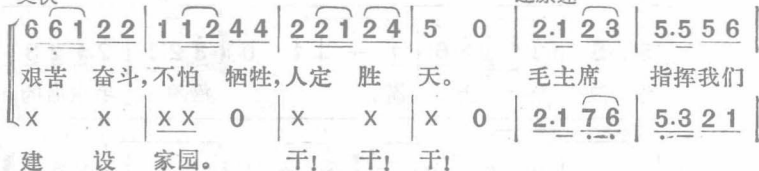 6 6 1 2 2 | 1 1 2 4 4 | 2 2 1 2 4 | 5 0 | 2·1 2 3 | 5·5 5 6 |
艰苦 奋斗,不怕 牺牲,人定 胜 天。 毛主席 指挥我们
X X | X X 0 | X X | X 0 | 2·1 7 6 | 5·3 2 1 |
建 设 家园。 干! 干! 干!